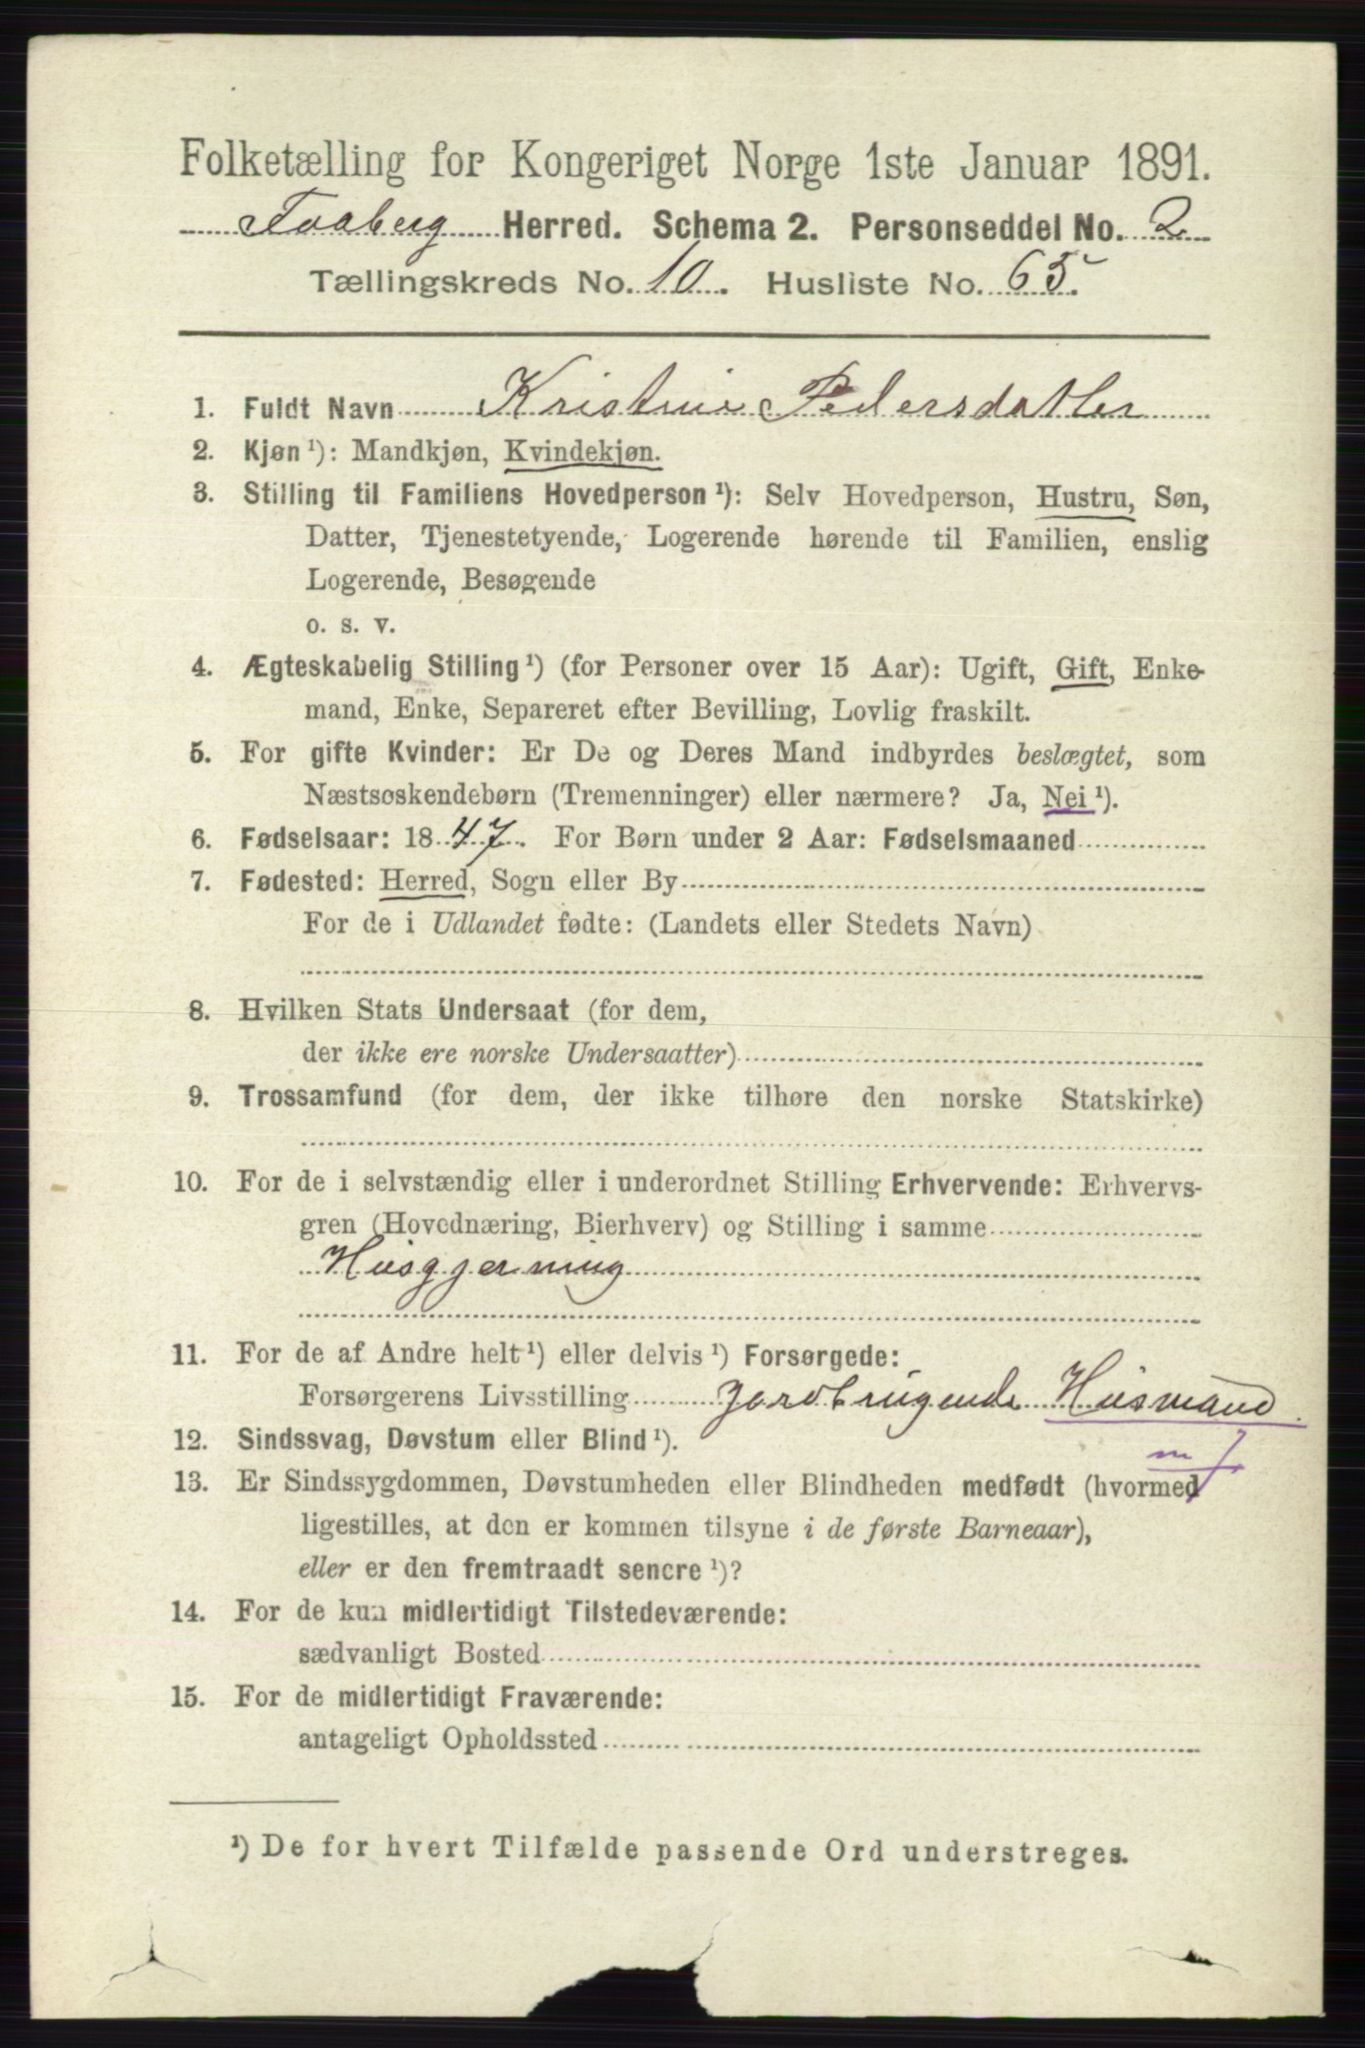 Folketælling for Kongeriget Norge 1ste Januar 1891.
Faaberg Herred. Schema 2. Personseddel No. 2
Tællingskreds No. 10. Husliste No. 65.
1. Fuldt Navn Kristine Pedersdatter
2. Kjøn ¹): Mandkjøn, Kvindekjøn.
3. Stilling til Familiens Hovedperson ¹): Selv Hovedperson, Hustru, Søn,
Datter, Tjenestetyende, Logerende hørende til Familien, enslig
Logerende, Besøgende
o. s. v.
4. Ægteskabelig Stilling ¹) (for Personer over 15 Aar): Ugift, Gift, Enke-
mand, Enke, Separeret efter Bevilling, Lovlig fraskilt.
5. For gifte Kvinder: Er De og Deres Mand indbyrdes beslægtet, som
Næstsøskendebørn (Tremenninger) eller nærmere? Ja, Nei ¹).
6. Fødselsaar: 1847. For Børn under 2 Aar: Fødselsmaaned
7. Fødested: Herred, Sogn eller By
For de i Udlandet fødte: (Landets eller Stedets Navn)
8. Hvilken Stats Undersaat (for dem,
der ikke ere norske Undersaatter)
9. Trossamfund (for dem, der ikke tilhøre den norske Statskirke)
10. For de i selvstændig eller i underordnet Stilling Erhvervende: Erhvervs-
gren (Hovednæring, Bierhverv) og Stilling i samme
Husgjerning
11. For de af Andre helt ¹) eller delvis ¹) Forsørgede:
Forsørgerens Livsstilling Jordbrugende Husmand
12. Sindssvag, Døvstum eller Blind ¹).
13. Er Sindssygdommen, Døvstumheden eller Blindheden medfødt (hvormed
ligestilles, at den er kommen tilsyne i de første Barneaar),
eller er den fremtraadt senere ¹)?
14. For de kun midlertidigt Tilstedeværende:
sædvanligt Bosted
15. For de midlertidigt Fraværende:
antageligt Opholdssted
¹) De for hvert Tilfælde passende Ord understreges.